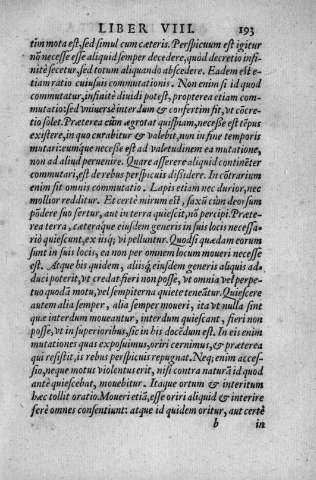 LIBER VIII. 193
tim mota est, sed simul cum cæteris. Perspicuum est igitur
nō necesse esse aliquid semper decedere, quòd decretio infi-
nitè secetur, sed totum aliquando abscedere. Eadem est e-
tiam ratio cuiusuis commutationis. Non enim si id quod
commutatur, infinitè diuidi potest, propterea etiam com-
mutatio: sed vniuersè interdum & confertim fit, vt cōcre-
tio solet. Præterea cùm ægrotat quispiam, necesse est tēpus
existere, in quo curabitur & valebit, non in fine temporis
mutari: eumque necesse est ad valetudinem ea mutatione,
non ad aliud peruenire. Quare asserere aliquid continēter
commutari, est de rebus perspicuis dissidere. In cōtrarium
enim fit omnis commutatio. Lapis etiam nec durior, nec
mollior redditur. Et certè mirum est, saxū cùm deorsum
pōdere suo fertur, aut in terra quiescit, nō percipi. Præte-
rea terra, cæteraque eiusdem generis in suis locis necessa-
riò quiescunt, ex iisq; vi pelluntur. Quòd si quædam eorum
sunt in suis locis, ea non per omnem locum moueri necesse
est. Atque his quidem, aliisq; eiusdem generis aliquis ad-
duci poterit, vt credat fieri non posse, vt omnia vel perpe-
tuo quodā motu, vel sempiterna quiete teneātur. Quiescere
autem alia semper, alia semper moueri, ita vt nulla sint
quæ interdum moueantur, interdum quiescant, fieri non
posse, vt in superioribus, sic in his docēdum est. In eis enim
mutationes quas exposuimus, oriri cernimus, & præterea
qui resistit, is rebus perspicuis repugnat. Neq; enim acces-
sio, neque motus violentus erit, nisi contra naturā id quod
antè quiescebat, mouebitur. Itaque ortum & interitum
hæc tollit oratio. Moueri etiā, esse oriri aliquid & interire
ferè omnes consentiunt: atque id quidem oritur, aut certè
b in